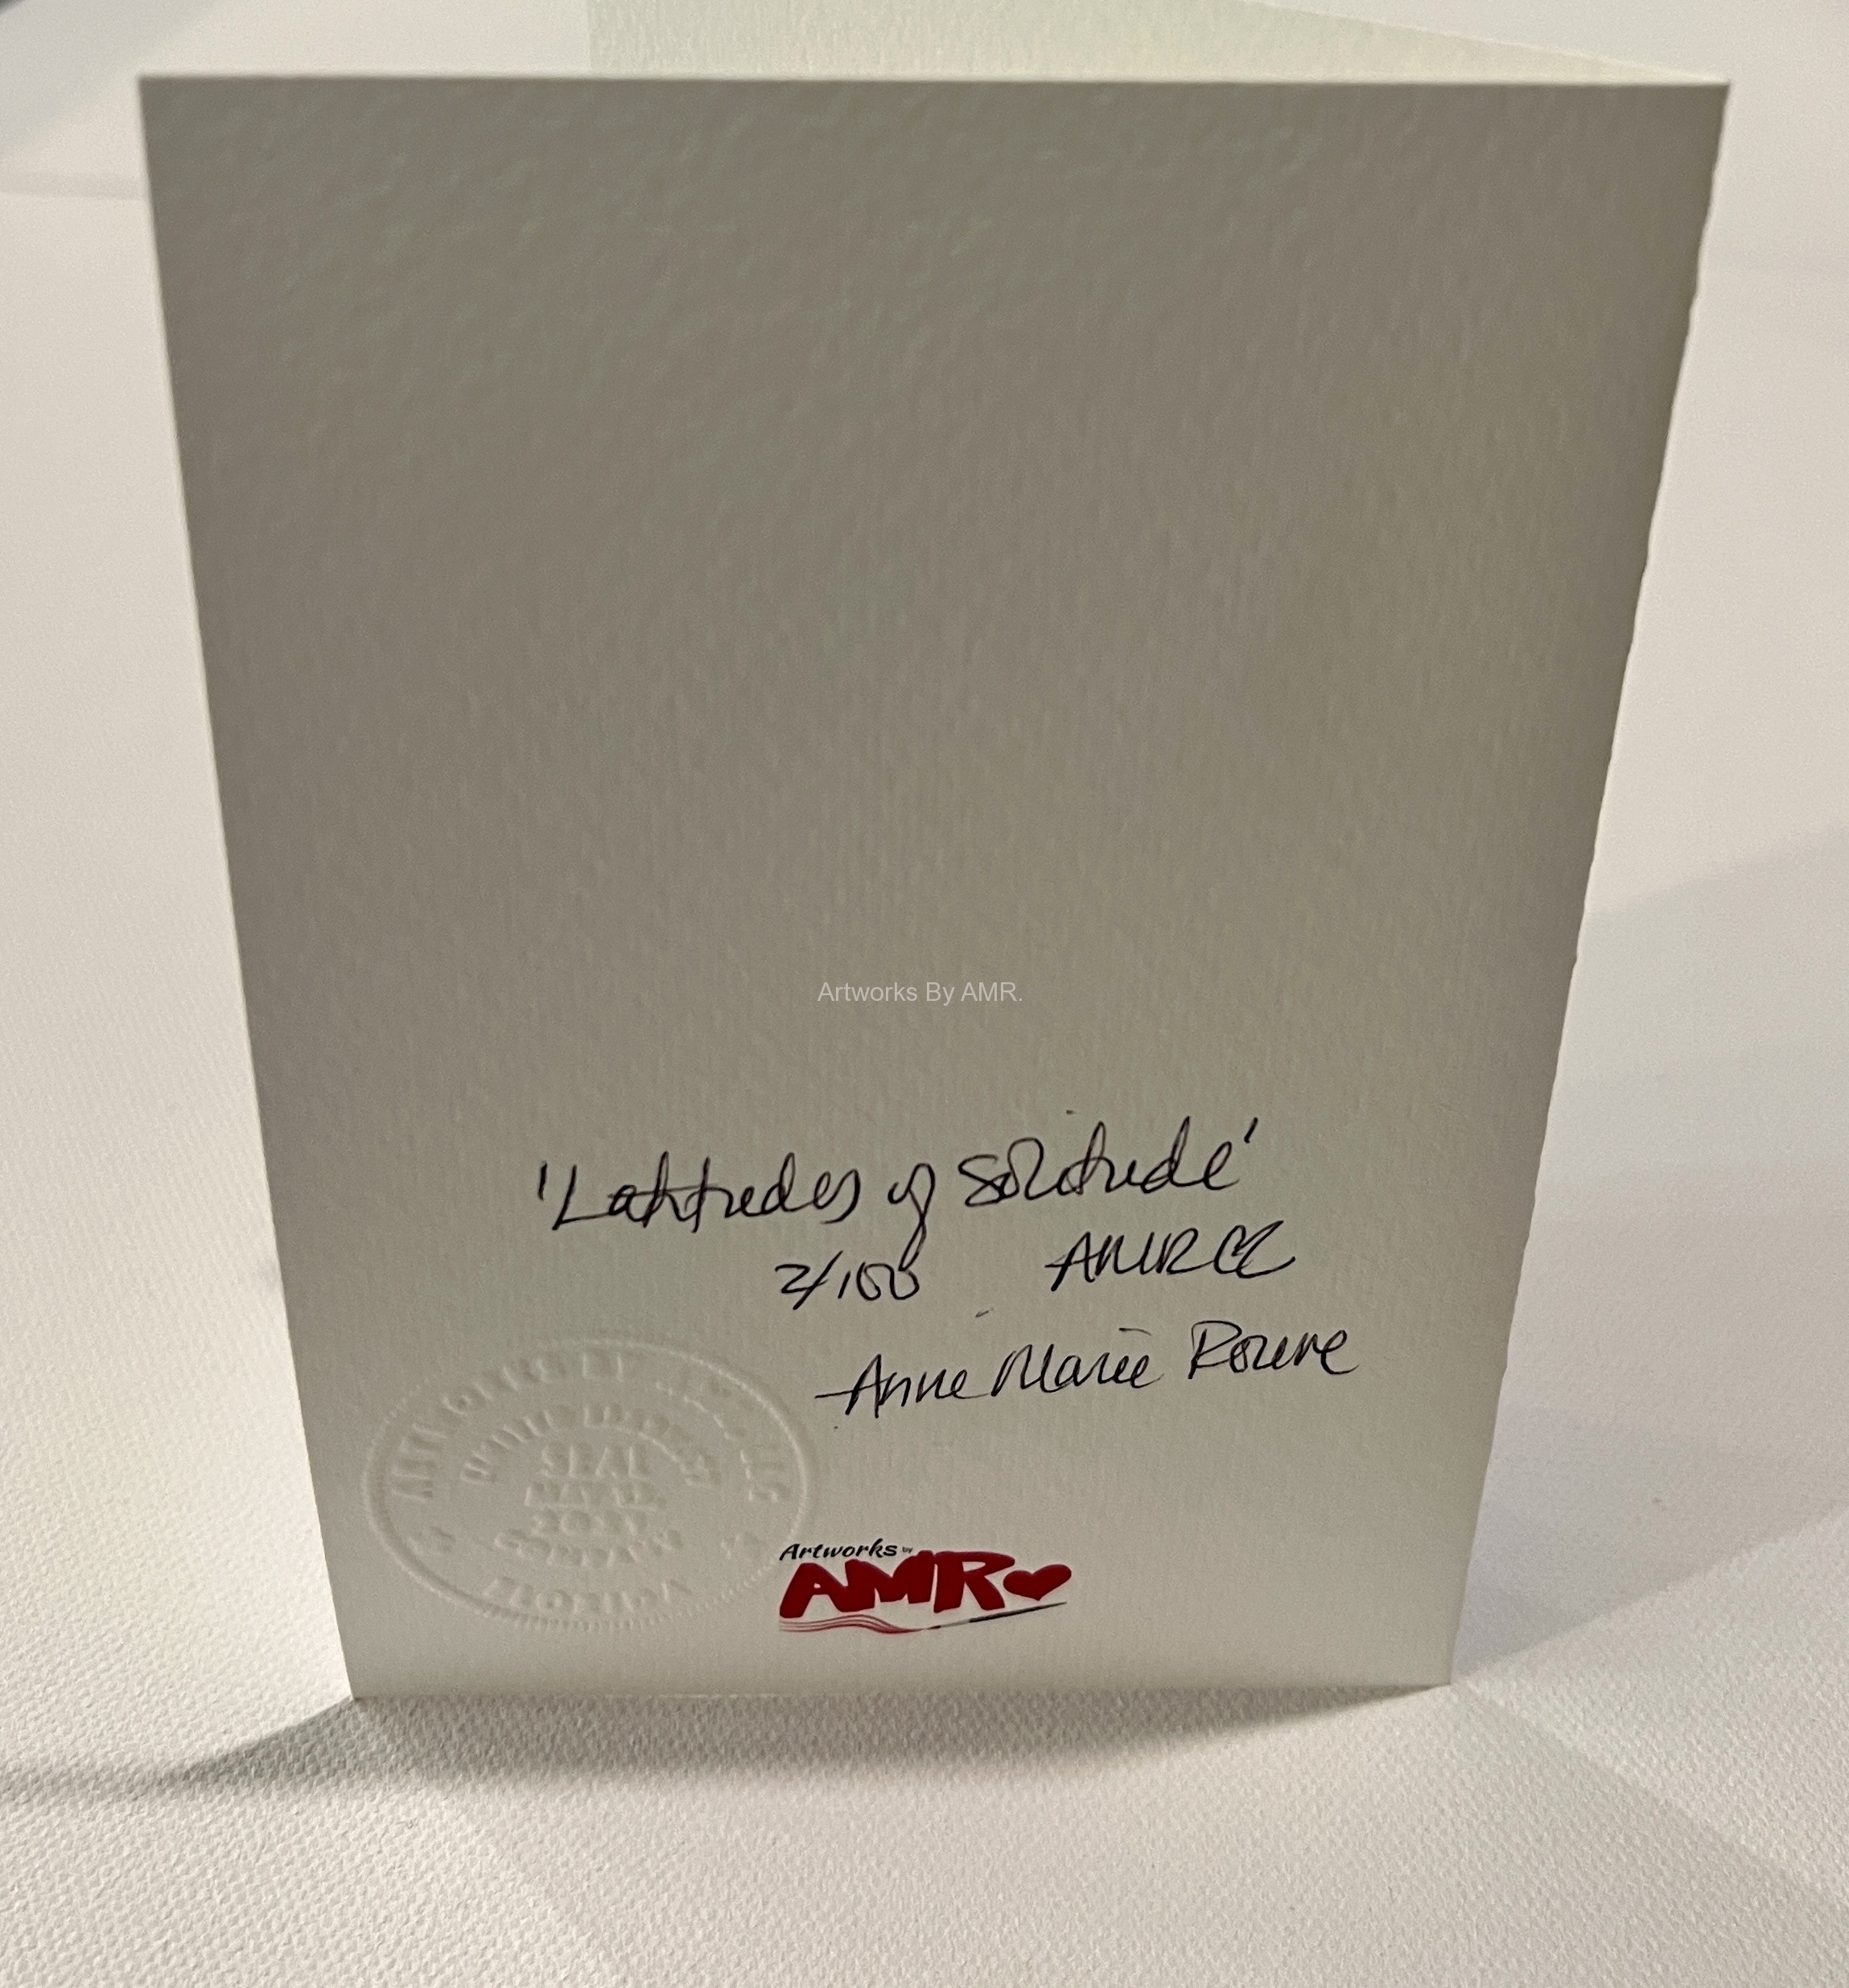 Artworks By AMR.
'Latitudes of Solitude'
2/100 AMR
Anne Marie
ARTWORKS BY
SEAL
COMPANY
FLORIDA
Artworks by
AMR